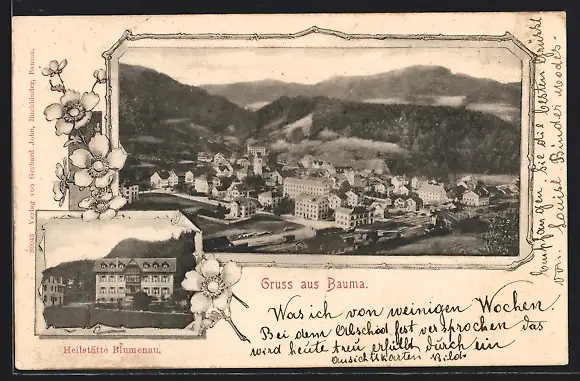 20043 Verlag von Gerhard John, Buchbinder, Bauma.
Heilstätte Blumenau.
Gruss aus Bauma.
Was ich von weinigen Wochen.
Bei dem fest versprochen das
wird heute treu erfüllt durch ein
Ansichtskarten Bild
Empfangen sie die besten Grüße
von Louise Binder